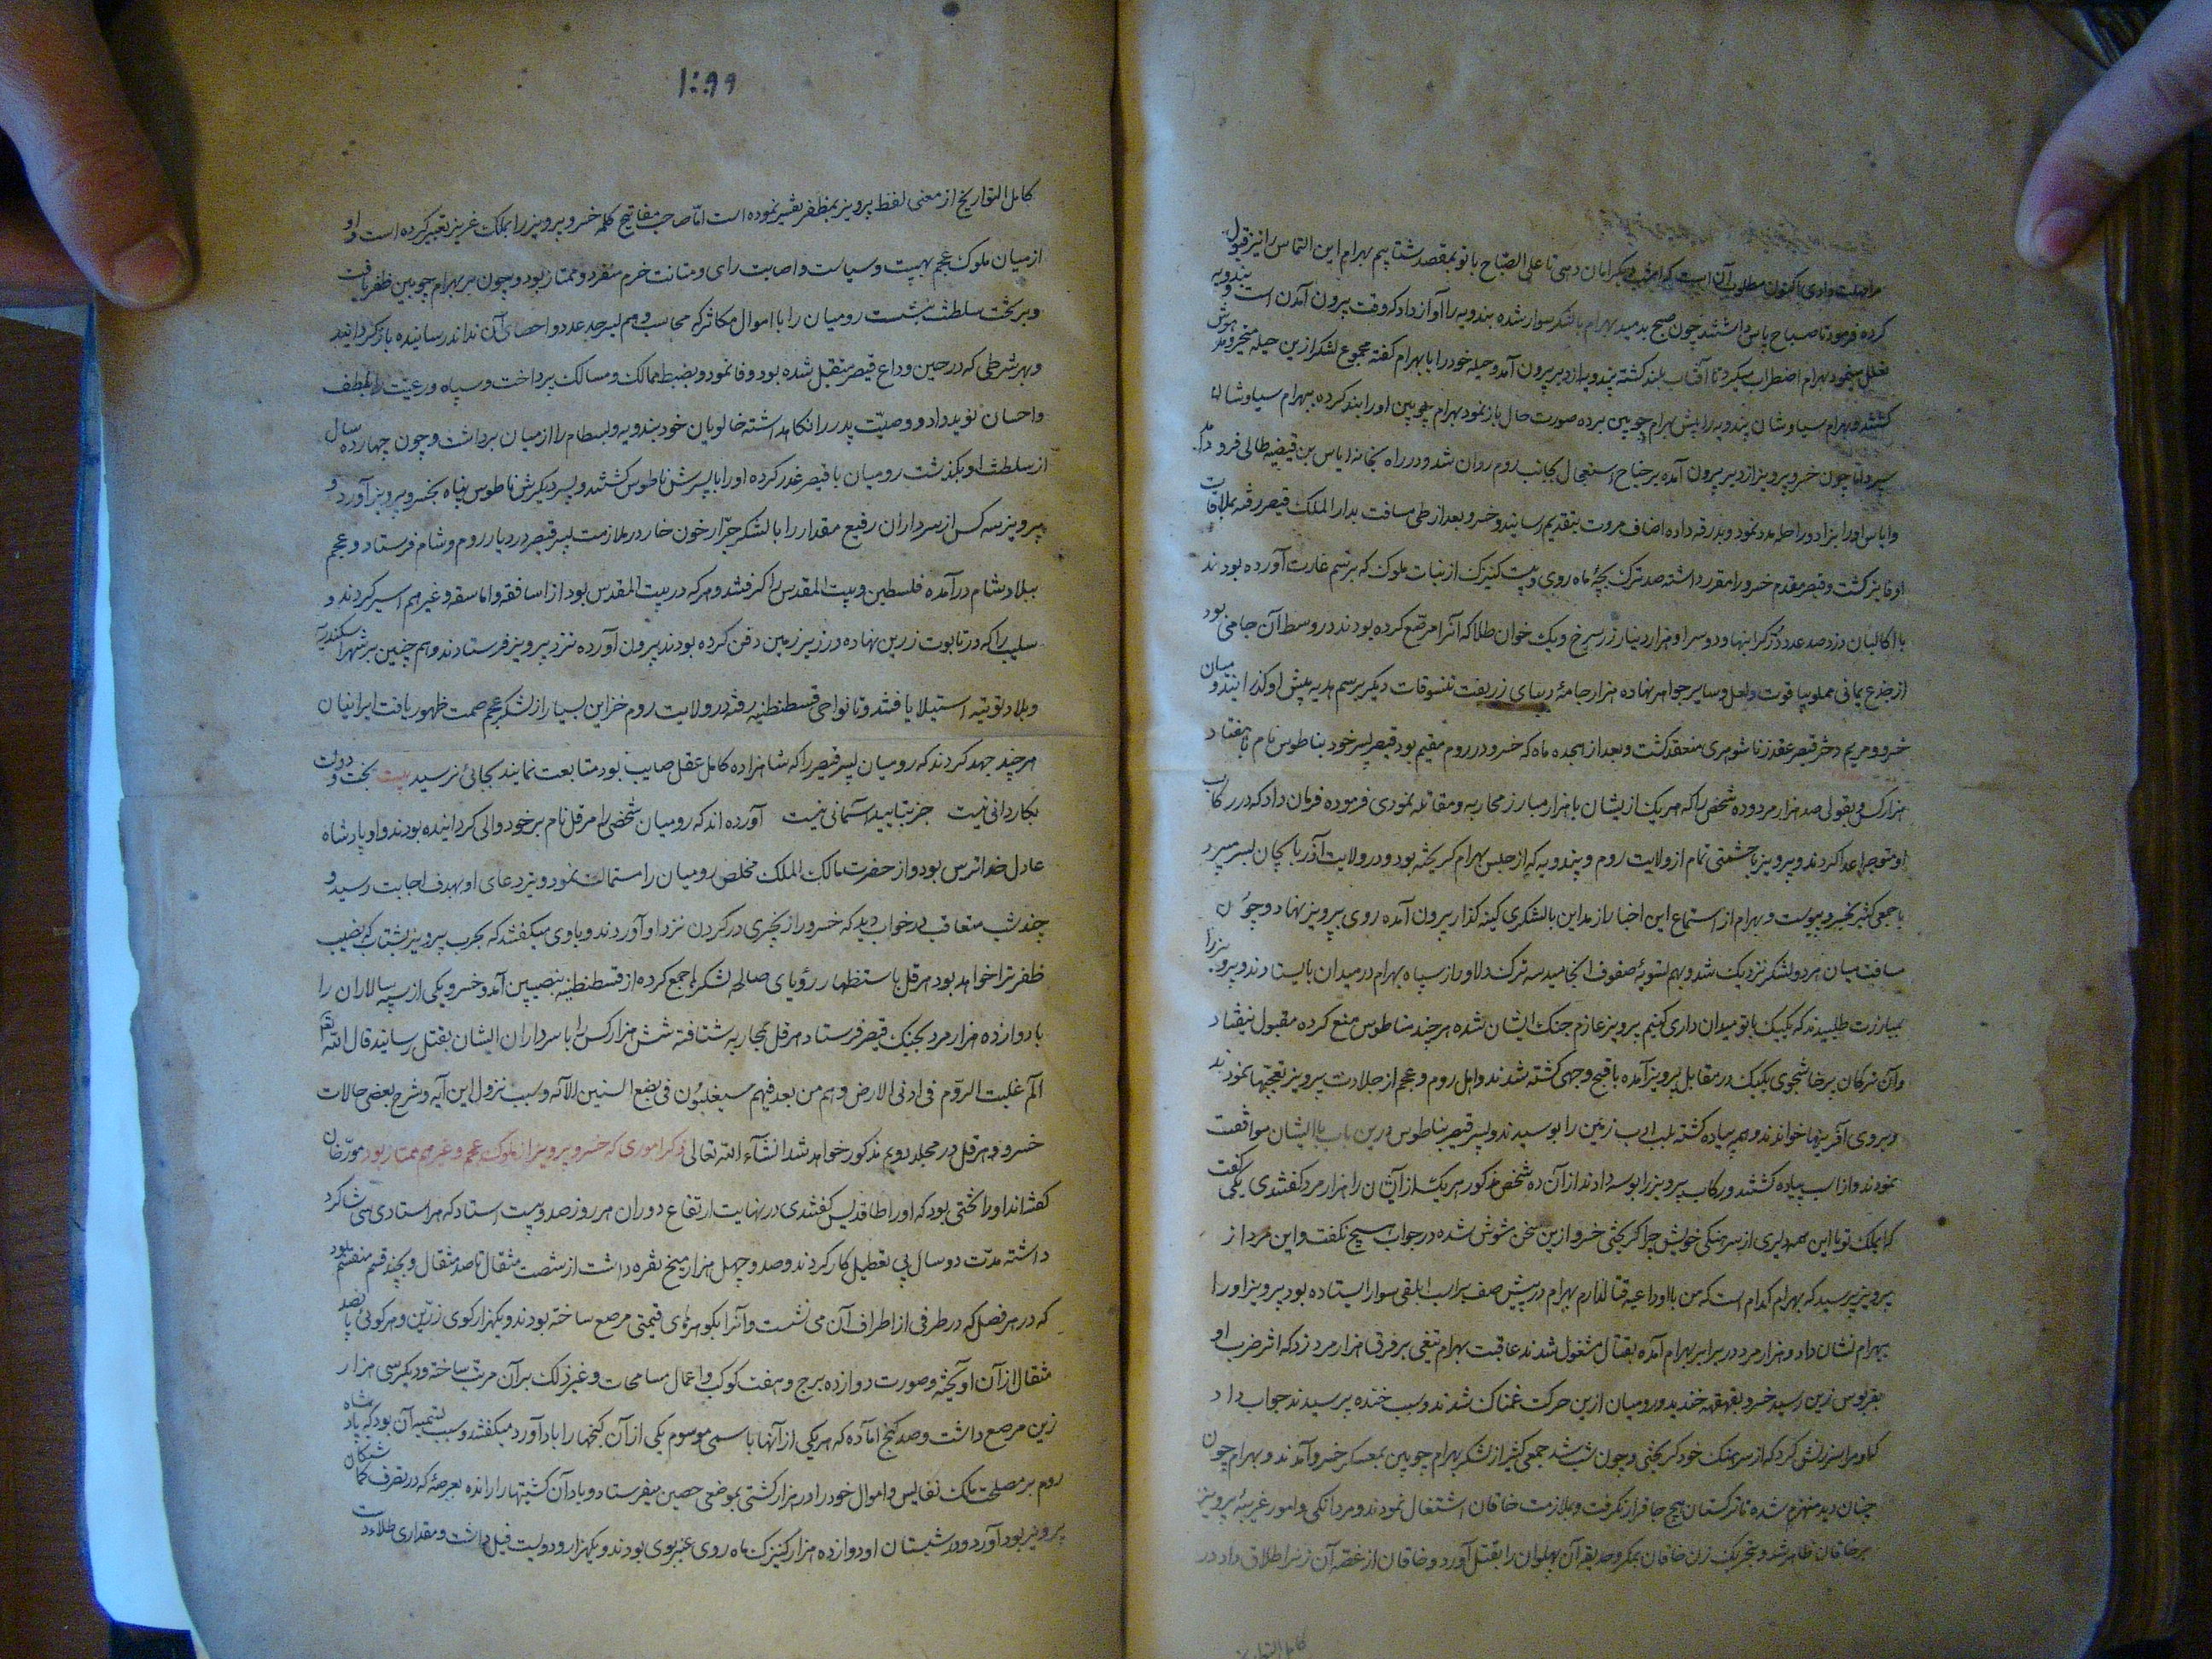 مراجعت دادی اکنون مطلوب آن است که امشب دیگر امان دهی تا علی الصباح با تو بمقصد شتابیم بهرام این التماس را نیز قبول
کرده فرمود تا صباح پاس داشتند چون صبح بدمید بهرام با لشکر سوار شده بندویه را آواز داد که وقت بیرون آمدن است و بندویه
تعلل مینمود بهرام اضطراب میکرد تا آفتاب بلند کشته بندویه از دیر بیرون آمد و حیله خود را با بهرام کفته مجموع لشکر ازین حیله متحیر و مدهوش
کشتند و بهرام سیاوشان بندویه را پیش بهرام چوبین برده صورت حال باز نمود بهرام چوبین او را بند کرده ببهرام سیاوشان
سپرد اما چون خسرو پرویز از دیر بیرون آمده بر جناح استعجال بجانب روم روان شد و در راه بخانه ایاس بن قبیصه طائی فرود آمد
و ایاس او را بزاد و راحله مدد نمود و بدرقه داده اضاف مروت بتقدیم رسانید و خسرو بعد از طی مسافت بدار الملک قیصر رفته بملاقات
او فایز کشت و قیصر مقدم خسرو را مقرر داشته صد ترک بچهٔ ماه روی و بیست کنیزک از بنات ملوک که برسم غارت آورده بودند
از جذع یمانی مملو بیاقوت و لعل و سایر جواهر نهاده هزار جامهٔ دیبای زربفت تنسوقات دیکر برسم هدیه پیش او کذرانیدند و میان
خسرو و مریم دختر قیصر عقد زناشوهری منعقد کشت و بعد از هجده ماه که خسرو در روم مقیم بود قیصر پسر خود بناطوس نام با هفتاد
هزار کس و بقولی صد هزار مرد و ده شخص را که هر یک ازیشان با هزار مبارز محاربه و مقاتله نمودی فرموده فرمان داد که در رکاب
او متوجه اعدا کردند و پرویز با حشمتی تمام از ولایت روم و بندویه که از حبس بهرام کریخته بود و در ولایت آذربایجان بسر میبرد
با جمعی کثیر بخسرو پیوست و بهرام از استماع این اخبار از مداین با لشکری کینه کذار بیرون آمده روی بپرویز نهاد و چون
مسافت میان هر دو لشکر نزدیک شد و مهم بتسویهٔ صفوف انجامید سه ترک دلاور از سپاه بهرام در میدان بایستادند و پرویز را
بمبارزت طلبیدند که یکیک با تو میدان داری کنیم پرویز عازم جنک ایشان شده هر چند بناطوس منع کرده مقبول نیفتاد
و آن ترکان پرخاشجوی یکیک در مقابل پرویز آمده باقبح وجهی کشته شدند و اهل روم و عجم از جلادت پرویز تعجبها نمودند
و بروی آفرینها خواندند و هم پیاده کشته بلب ادب زمین را بوسیدند و پسر قیصر بناطوس درین باب با ایشان موافقت
نمودند و از اسب پیاده کشتند و رکاب پرویز را بوسه دادند از آن ده شخص مذکور هر یک از آنشان را هزار مرد کفتندی یکی کفت
که ای ملک تو با این همه دلیری از سرهنکی خویش چرا کریختی خسرو ازین سخن مشوش شده در جواب هیچ نکفت و این مرد از
پرویز پرسید که بهرام کدام است که من با او داعیه قتال دارم بهرام در پیش صف بر اسب ابلقی سوار ایستاده بود پرویز او را
ببهرام نشان داد و هزار مرد در برابر بهرام آمده بقتال مشغول شدند عاقبت بهرام تیغی بر فرق هزار مرد زد که اثر ضرب او
بقربوس زین رسید خسرو بقهقهه خندید و رومیان ازین حرکت غمناک شدند و سبب خنده پرسیدند جواب داد
که او مرا سرزنش کرد که از سرهنک خود کریختی و چون شب شد جمعی کثیر از لشکر بهرام چوبین بمعسکر خسرو آمدند و بهرام چون
چنان دید منهزم شده تا ترکستان هیچ جا قرار نکرفت و بملازمت خاقان اشتغال نمودند و مردانکی و امور غریبهٔ پرویز
بر خاقان ظاهر شد و بتحریک زن خاقان بمکر و خدیعه آن پهلوان را بقتل آورد و خاقان از غصه آن زن را طلاق داد در
کامل التواریخ
۱۰۹۹
کامل التواریخ از معنی لفظ پرویز بمظفر تفسیر نموده است اما صاحب مفاتیح کلمه خسرو پرویز را بملک عزیز تعبیر کرده است و او
از میان ملوک عجم بهیبت و سیاست و اصابت رای و متانت حزم منفرد و ممتاز بود و چون بر بهرام چوبین ظفر یافت
و بر تخت سلطنت نشست رومیان را با اموال متکاثر که محاسب وهم بسرحد عدد و احصای آن نداند رسانیده باز کردانید
و بهر شرطی که در حین وداع قیصر متقبل شده بود وفا نمود و بضبط ممالک و مسالک پرداخت و سپاه و رعیت را بلطف
و احسان نوید داد و وصیت پدر را نکاهداشته خالویان خود بندویه و بسطام را از میان برداشت و چون چهارده سال
از سلطنت او بکذشت رومیان با قیصر غدر کرده او را با پسرش ناطوس کشتند و پسر دیکرش ناطوس پناه بخسرو پرویز آورد و
پرویز سه کس از سرداران رفیع مقدار را با لشکر جرار خون خار در ملازمت پسر قیصر در دیار روم و شام فرستاد و عجم
ببلاد شام در آمده فلسطین و بیت المقدس را کرفتند و هر که در بیت المقدس بود از اساقفه و اماسقه و غیر هم اسیر کردند و
سلیب را که در تابوت زرین نهاده در زیر زمین دفن کرده بودند بیرون آورده نزد پرویز فرستادند و هم چنین بر شهر اسکندریه
و بلاد نوبیه استیلا یافتند و تا نواحی قسطنطنیه رفته در ولایت روم خزاین بسیار از لشکر عجم صمت ظهور یافت ایرانیان
هر چند جهد کردند که رومیان پسر قیصر را که شاهزاده کامل عقل صایب بود متابعت نمایند بجائی نرسید بیت بخت و دولت
بکاردانی نیست جز بتایید آسمانی نیست آورده اند که رومیان شخصی را هرقل نام بر خود والی کردانیده بودند و او پادشاه
عادل خدا ترس بود و از حضرت مالک الملک مخلص رومیان را مسئلت نمود و تیر دعای او بهدف اجابت رسید و
چند شب متعاقب در خواب دید که خسرو را زنجیری در کردن نزد او آوردند و با وی میکفتند که بحرب پرویز بشتاب که نصیب
ظفر ترا خواهد بود هرقل باستظهار رؤیای صالحه لشکرها جمع کرده از قسطنطنیه بنصیبین آمد و خسرو یکی از سپه سالاران را
با دوازده هزار مرد بجنک قیصر فرستاد هرقل بمحاربه شتافته شش هزار کس را با سرداران ایشان بقتل رسانید قال الله تعالی
آلم غلبت الروم فی ادنی الارض و هم من بعد غلبهم سیغلبون فی بضع السنین الآیه و سبب نزول این آیه و شرح بعضی حالات
خسرو و هرقل در مجلد دویم مذکور خواهد شد انشاء الله تعالی ذکر اموری که خسرو پرویز از ملوک عجم و غیرهم ممتاز بود مورخان
کفته اند او را تختی بود که او را طاقدیس کفتندی در نهایت ارتفاع دوران هر روز صد و بیست استاد که هر استادی سی شاکرد
داشته مدت دو سال بی تعطیل کار کردند و صد و چهل هزار میخ نقره داشت از شصت مثقال تا صد مثقال و بچند قسم منقسم بود
که در هر فصل که در طرفی از اطراف آن می نشست و آنرا بکوهرهای قیمتی مرصع ساخته بودند و یکهزار کوی زرین و هر کوئی پانصد
مثقال از آن آویخته و صورت دوازده برج و هفت کوکب و اعمال مسامحات و غیر ذلک بر آن مرتب ساخته و دیکر سی هزار
زین مرصع داشت و صد کنج آماده که هر یکی از آنها باسمی موسوم یکی از آن کنجها را باد آورد میکفتند و سبب تسمیه آن بود که پادشاه
روم بر مصلحت ملک نفایس و اموال خود را در هزار کشتی بموضعی حصین میفرستاد و باد آن کشتیها را رانده بعرصهٔ که در تصرف کماشتکان
پرویز بود آورد و در شبستان او دوازده هزار کنیزک ماه روی عنبر بوی بودند و یکهزار و دویست فیل داشت و مقداری طلاء دست